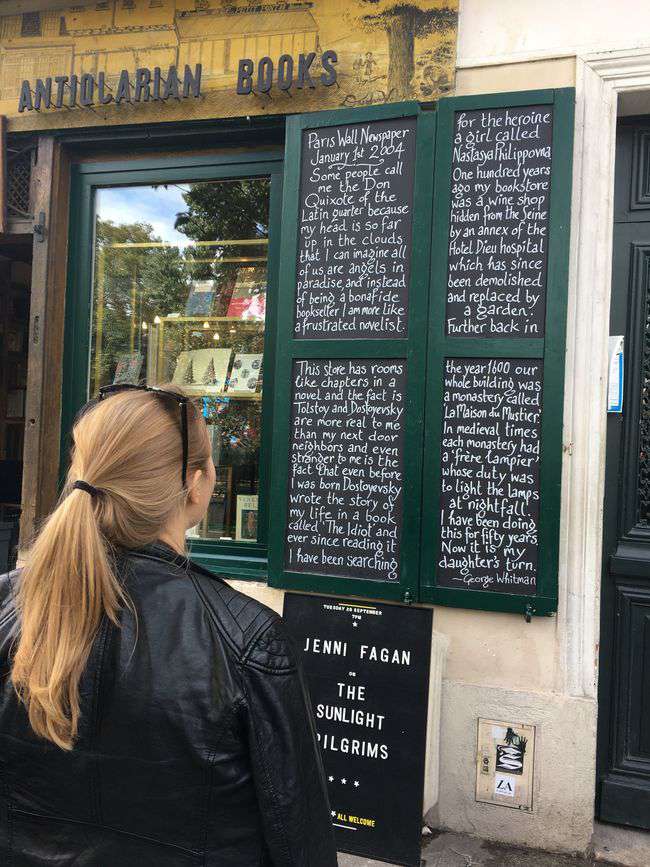 ANTIQUARIAN BOOKS
Paris Wall Newspaper
January 1st 2004
Some people call
me the Don
Quixote of the
Latin Quarter because
my head is so far
up in the clouds
that I can imagine all
of us are angels in
paradise and instead
of being a bonafide
bookseller I am more like
a frustrated novelist.
This store has rooms
like chapters in a
novel and the fact is
Tolstoy and Dostoyevsky
are more real to me
than my next door
neighbors and even
stranger to me is the
fact that even before
I was born Dostoyevsky
wrote the story of
my life in a book
called 'The Idiot and
ever since reading it
I have been searching
for the heroine
a girl called
Nastasya Philippovna
One hundred years
ago my bookstore
was a wine shop
hidden from the Seine
by an annex of the
Hotel Dieu hospital
which has since
been demolished
and replaced by
a garden.
Further back in
the year 1600 our
whole building was
a monastery called
'La Maison du Mustier'
In medieval times
each monastery had
a 'frère lampier'
whose duty was
to light the lamps
at nightfall.
I have been doing
this for fifty years
Now it is my
daughter's turn.
—George Whitman
TUESDAY 20 SEPTEMBER
7PM
JENNI FAGAN
ON
THE
SUNLIGHT
PILGRIMS
ALL WELCOME
LA